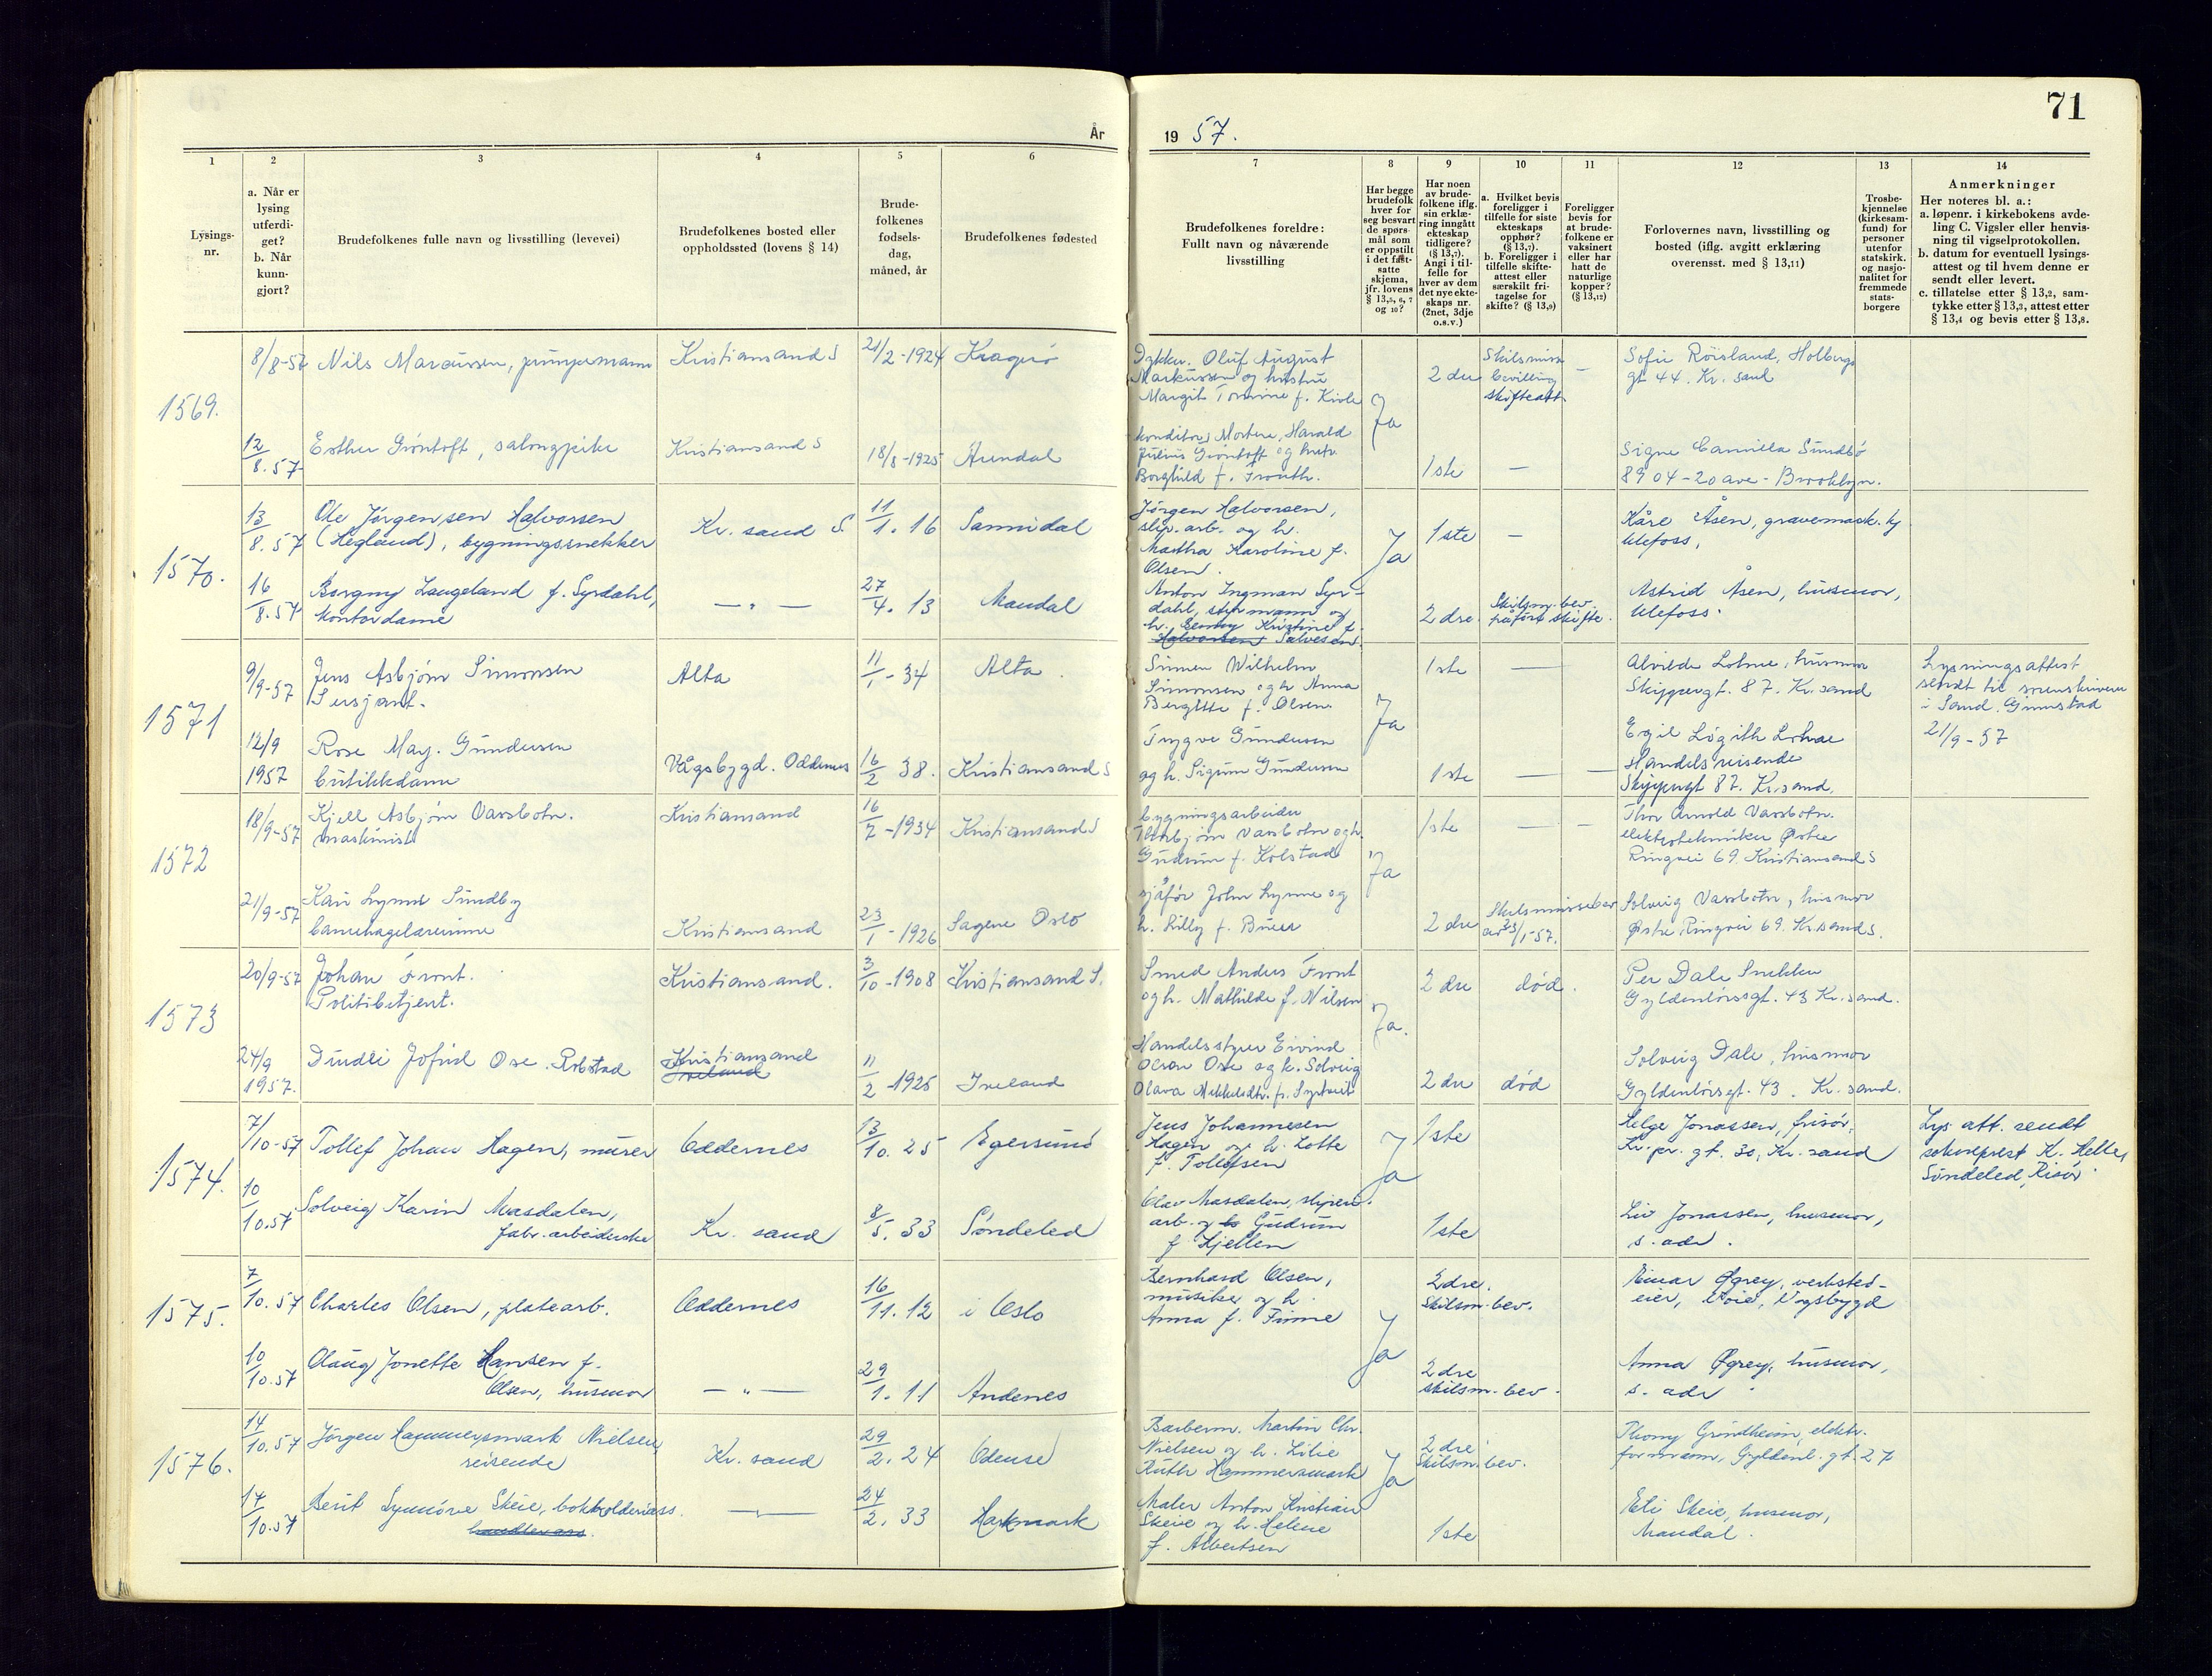 71
År
19 57.
1
2
3
4
5
6
7
8
9
10
11
12
13
14
Lysings-
nr.
a. Når er
lysing
utferdi-
get?
b. Når
kunn-
gjort?
Brudefolkenes fulle navn og livsstilling (levevei)
Brudefolkenes bosted eller
oppholdssted (lovens § 14)
Brude-
folkenes
fødsels-
dag,
måned, år
Brudefolkenes fødested
Brudefolkenes foreldre:
Fullt navn og nåværende
livsstilling
Har begge
brudefolk
hver for
seg besvart
de spørs-
mål som
er oppstilt
i det fast-
satte
skjema,
jfr. lovens
§ 13,5, 6, 7
og 10?
Har noen
av brude-
folkene iflg.
sin erklæ-
ring inngått
ekteskap
tidligere?
(§ 13,7).
Angi i til-
felle for
hver av dem
det nye ekte-
skaps nr.
(2net, 3dje
o.s.v.)
a. Hvilket bevis
foreligger i
tilfelle for siste
ekteskaps
opphør?
(§ 13,7).
b. Foreligger i
tilfelle skifte-
attest eller
særskilt fri-
tagelse for
skifte? (§ 13,9)
Foreligger
bevis for
at brude-
folkene er
vaksinert
eller har
hatt de
naturlige
kopper?
(§ 13,12)
Forlovernes navn, livsstilling og
bosted (iflg. avgitt erklæring
overensst. med § 13,11)
Trosbe-
kjennelse
(kirkesam-
fund) for
personer
utenfor
statskirk.
og nasjo-
nalitet for
fremmede
stats-
borgere
Anmerkninger
Her noteres bl. a.:
a. løpenr. i kirkebokens avde-
ling C. Vigsler eller henvis-
ning til vigselprotokollen.
b. datum for eventuell lysings-
attest og til hvem denne er
sendt eller levert.
c. tillatelse etter § 13,2, sam-
tykke etter § 13,3, attest etter
§ 13,4 og bevis etter § 13,8.
1569.
8/8-57 Nils Marcussen, pumpemann Kristiansand S 21/2-1924 Kragerø
Oluf August
Markussen og hustru
Margit Tomine f.
Ja
2 dre
Skilsmiss
bevilling
skifteatt.
—
Sofie Röisland, Holbergs
gt 44. Kr. sand
12/8.57 Esther Gröntoft, salongpike Kristiansand S 18/8-1925 Arendal
Konditor Harald
Julius Gröntoft og hustr.
Borghild f.
1ste —
Signe Camilla Sundbö
8904-20 ave - Brooklyn.
1570.
13/8.57 Ole Jörgensen Halvorsen
(Hegland), bygningssnekker Kr. sand S. 11/1.16 Sannidal
Jörgen Halvorsen,
slip.arb. og h.
Martha Karoline f.
Olsen.
Ja
1ste —
Kåre Åsen, gravemask. kj
Ulefoss,
16/8.57 Borgny Langeland f. Syrdahl,
kontordame — " — 27/4.13 Mandal
Anton Ingman Syr-
dahl, styrmann og
h. Kristine f.
Halvorsen Salvesen.
2 dre.
Skilsm. bev.
påført skifte.
Astrid Åsen, husmor,
Ulefoss.
1571
9/9-57 Jens Asbjörn Simonsen
Sersjant. Alta 11/1-34 Alta.
Simen Wilhelm
Simonsen og h Anna
Bergitte f. Olsen.
Ja
1ste —
Alvilde Lohne, husmor
Skippergt. 87. Kr. sand
Lysningsattest
sendt til sorenskriveren
i Sand. Grimstad
21/9-57
12/9
1957 Rose May. Gundersen
butikkdame Vågsbygd. Oddernes 16/2 38. Kristiansand S
Trygve Gundersen
og h. Sigrun Gundersen
1ste — —
Egil Lohne
Handelsreisende
Skippergt 87. Kr.sand.
1572
18/9-57 Kjell Asbjörn Vassbotn.
maskinist Kristiansand 16/7-1934 Kristiansand S
bygningsarbeider
Thorbjörn Vassbotn og h.
Gudrun f. Kolstad
Ja
1ste — —
Thor Arnold Vassbotn.
elektrotekniker Østre
Ringvei 69. Kristiansand S
21/9-57 Kari Lynne Sundby
barnehagelærerinne Kristiansand 23/1-1926 Sagene Oslo
sjåfør John Lynne og
h. Lilly f.
2 dre
Skilsmissebev
av 23/1-57.
Solveig Vassbotn, husmor
Østre Ringvei 69. Kr.sand S.
1573
20/9-57 Johan Front.
Politibetjent. Kristiansand. 3/10-1908 Kristiansand S.
Smed Anders Front
og h. Mathilde f. Nilsen
Ja.
2 dre død.
Per Dale Snekker
Gyldenlövesgt. 43 Kr. sand.
24/9
1957. Jofrid Ose. Robstad Kristiansand
Iveland 11/2-1925 Iveland
Handelsstyrer Eivind
Olson Ose og h. Solveig
Olava Mikkelsdtr. f.
2 dre død
Solveig Dale, husmor
Gyldenlövesgt. 43. Kr. sand.
1574.
7/10-57 Tollef Johan Hagen, murer Oddernes 13/10.25 Egersund
Jens Johannesen
Hagen og h. Lotte
f. Tollefsen
Ja
1ste
Helge Jonassen, frisør,
Kr. pr. gt. 30, Kr. sand
Lys. att. sendt
sokneprest K. Helle,
Söndeled, Risör.
10/10.57 Solveig Karin Masdalen,
fabr. arbeiderske Kr. sand 8/5.33 Søndeled
Olav Masdalen, sliperi-
arb. og h Gudrun
f. Kjellen
1ste
Liv Jonassen, husmor,
s. adr.
1575.
7/10.57 Charles Olsen, platearb. Oddernes 16/11.12 i Oslo
Bernhard Olsen,
musiker og h.
Anna f. Finne
Ja
2dre.
Skilsm. bev.
Einar Øgrey, verksted-
eier, Voie, Vågsbygd
10/10.57 Olaug Jonette Hansen f.
Olsen, husmor — " — 29/1.11 Andenes
2 dre
skilsm. bev.
Anna Øgrey, husmor,
s. adr.
1576.
14/10.57 Jørgen Hammersmark Nielsen,
reisende Kr. sand 29/2.24 Odense
Barberm. Martin Chr.
Nielsen og h. Lilie
Ruth Hammersmark
Ja
2 dre
Skilsm. bev.
Thomy Grindheim, elektr.
formann, Gyldenl. gt. 27
14/10.57 Berit Synnöve Skeie, bokholderiass.
— " — 24/2.33 Harkmark
Maler Anton Kristian
Skeie og h. Helene
f. Albertsen
1ste
Eli Skeie, husmor,
Mandal.